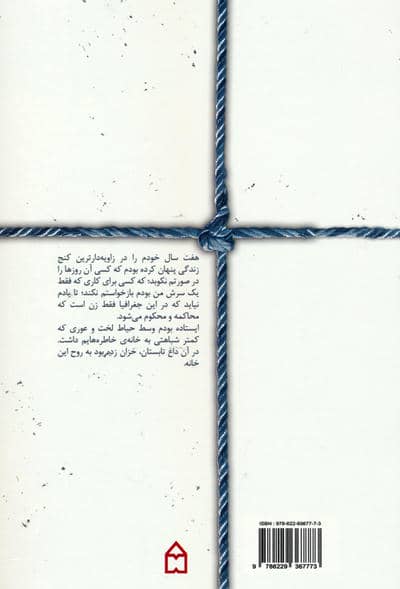 هفت سال خودم را در زاویه‌دارترین کنج
زندگی پنهان کرده بودم که کسی آن روزها را
در صورتم نکوبد؛ که کسی برای کاری که فقط
یک سرش من بودم بازخواستم نکند؛ تا یادم
نیاید که در این جغرافیا فقط زن است که
محاکمه و محکوم می‌شود.
ایستاده بودم وسط حیاط لخت و عوری که
کمتر شباهتی به خانه‌ی خاطره‌هایم داشت.
در آن داغ تابستان، خزان زده‌بود به روح این
خانه.
9 786229 367773